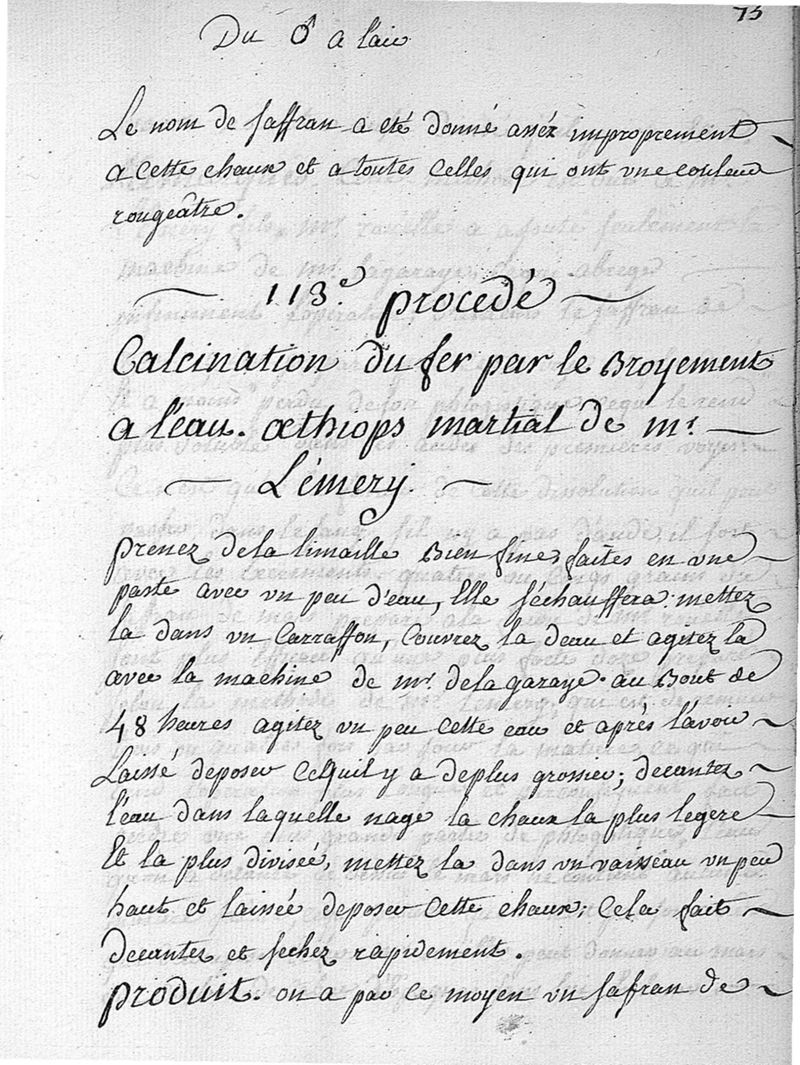 73
Du ♂ a l'air
Le nom de saffran a eté donné asséz improprement
a cette chaux et a toutes celles qui ont une couleur
rougeâtre.
113.e procédé
Calcination du fer par le Broyement
a l'eau. œthiops martial de mr.
Lémery.
prenez de la limaille Bien fine, faites en une
paste avec un peu d'eau, Elle s'échauffera. mettez
la dans un Carraffon, Couvrez la d'eau et agitez la
avec la machine de mr. de la garaye. au Bout de
48 heures agitez un peu cette eau et après l'avoir
Laissé deposer Ce Quil y a de plus grossier; decantez
l'eau dans laquelle nage la chaux la plus legere
Et la plus divisée, mettez la dans un vaisseau un peu
haut et laissée deposer Cette chaux; Cela fait
decantez et sechez rapidement.
produit. on a par ce moyen un safran de